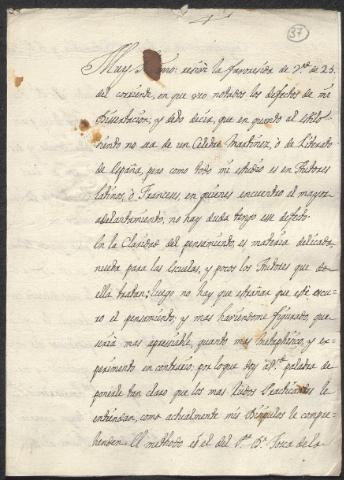 37
Muy mio: resivi la favoresida de Vd de 25.
del corriente, en que veo notados los defectos de mi
Dissertacion; y debo decir, que en quanto al estilo
siento no sea de un Celebre Martinez, o de Literato
de España, pero como todo mi estudio es en Autores
Latinos, o Franceses, en quienes encuentro el mayor
adelantamiento, no hay duda tengo ese defecto.
En la Claridad del pensamiento, es materia delicada,
nueba para las Escuelas, y pocos los Autores que de
ella tratan; luego no hay que estrañar que esté escu-
ro el pensamiento, y mas haviendome figurado, que
seria mas apresiable, quanto mas methaphisico, y ex-
perimento en contrario; por lo que doy a Vd palabra de
ponerle tan claro que los mas Rudos Practicantes le
entiendan, como actualmente mis Dicipulos le compre-
henden. El methodo es el del Pe. Tosca de la